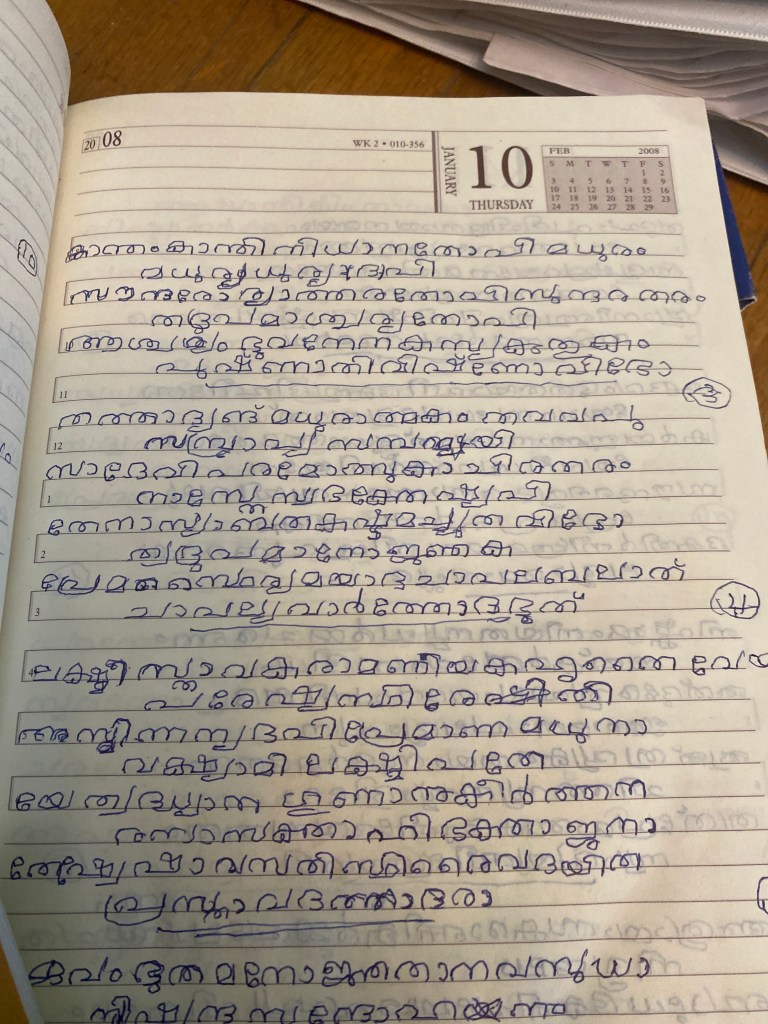 20 08
WK 2 • 010-356
JANUARY
10
THURSDAY
FEB 2008
S M T W T F S
1 2
3 4 5 6 7 8 9
10 11 12 13 14 15 16
17 18 19 20 21 22 23
24 25 26 27 28 29
കാന്തം കാന്തിനിധാനതോപി മധുരം
മധുര്യധുര്യാദപി
സൗന്ദര്യോത്തരതോപി സുന്ദരതരം
ത്വദ്രൂപമാശ്ചര്യതോപി
ആശ്ചര്യം ഭുവനേന കസ്യ കുതുകം
പുഷ്ണാതി വിഷ്ണോ വിഭോ
11
3
തത്താദൃങ് മധുരാത്മകം തവ വപു
12
സമ്പ്രാപ്യ സമ്പന്മയി
സാ ദേവി പരമോത്സുകാ ചിരതരം
1
നാസ്തേ സ്വഭക്തേഷ്വപി
തേനാസ്യാ ബത കഷ്ടമച്യുത വിഭോ
2
ത്വദ്രൂപമാനോജ്ഞക
പ്രേമസ്ഥൈര്യമയാദചാപലബലാത്
3
ചാപല്യവാർത്തോദഭൂത്
4
ലക്ഷ്മീസ്താവകരാമണീയകഹൃതൈവേയ
പരേഷ്വസ്ഥിരേത്
അസ്മിന്നന്യദപി പ്രമാണമധുനാ
വക്ഷ്യാമി ലക്ഷ്മിപതേ
യേ ത്വദ്ധ്യാന ഗുണാനുകീർത്തന
രസാസക്താ ഹി ഭക്താ ജനാ
തേഷ്വേഷാ വസതി സ്ഥിരൈവ ദയിത
പ്രസ്താവദത്താദരാ
ഏവംഭൂത മനോജ്ഞതാനവസുധാ
10